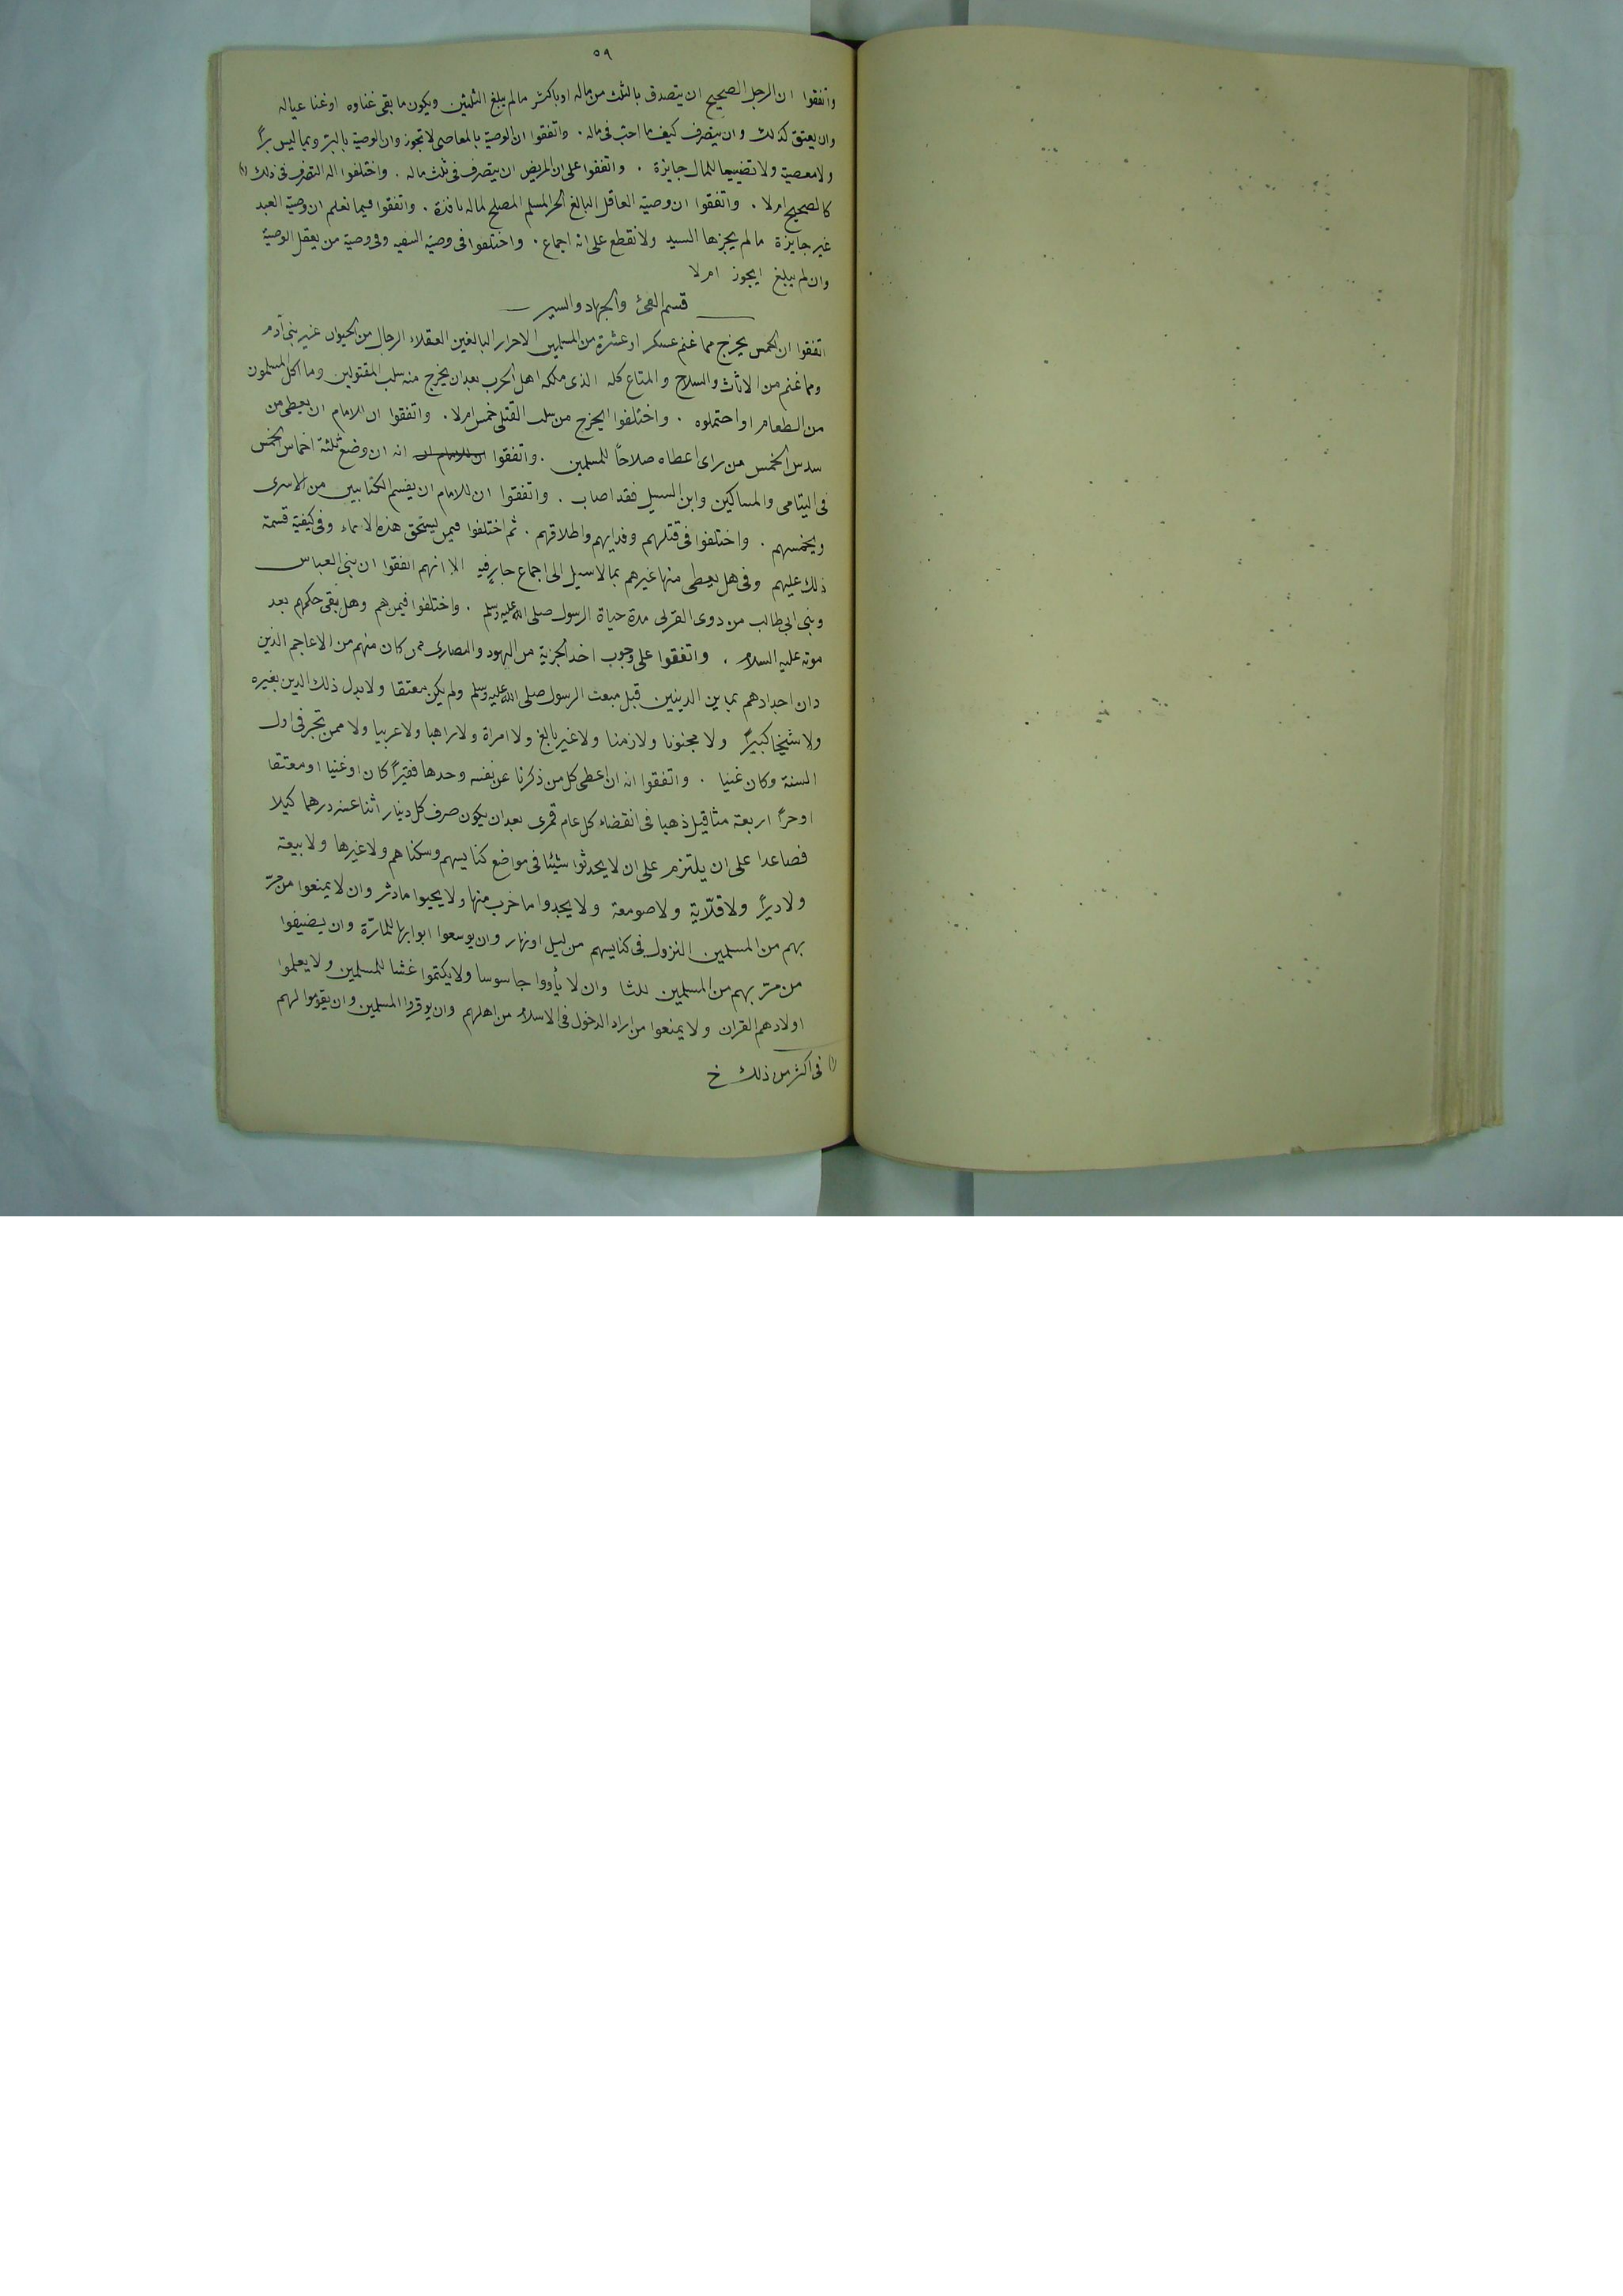 ٥٩
واتفقوا ان الرجل الصحيح ان يتصدق بالثلث من ماله او باكثر مالم يبلغ الثلثين ويكون ما بقى غناوه او غنا عياله
وان يعتق كذلك وان يتصرف كيف ما احب فى ماله . واتفقوا ان الوصية بالمعاصى لا تجوز وان الوصية بالبر وبما ليس برًا
ولا معصية ولا تضييعا للمال جايزة . واتفقوا على ان المريض ان يتصرف فى ثلث ماله . واختلفوا اله التصرف فى ذلك (١)
كالصحيح ام لا . واتفقوا ان وصية العاقل البالغ الحر المسلم المصلح لماله نافذة . واتفقوا فيما نعلم ان وصية العبد
غير جايزة مالم يجزها السيد ولا نقطع على انه اجماع . واختلفوا فى وصية السفيه وفى وصية من يعقل الوصية
وان لم يبلغ ايجوز ام لا
قسم الفئ والجهاد والسير
اتفقوا ان الخمس يخرج مما غنم عسكر او عشرة من المسلمين الاحرار البالغين العقلاء الرجال من الحيوان غير بنى آدم
ومما غنم من الاثاث والسلاح والمتاع كله الذى ملكه اهل الحرب بعد ان يخرج منه سلب المقتولين وما اكل المسلمون
من الطعام او احتملوه . واختلفوا ايخرج من سلب القتلى خمس ام لا . واتفقوا ان للامام ان يعطى من
سدس الخمس من راى اعطاه صلاحاً للمسلمين . واتفقوا ان للامام ان انه ان وضع ثلثة اخماس الخمس
فى اليتامى والمساكين وابن السبيل فقد اصاب . واتفقوا ان للامام ان يقسم الكتابيين من الاسرى
ويخمسهم . واختلفوا فى قتلهم وفدايهم واطلاقهم . ثم اختلفوا فيمن يستحق هذه الاسماء وفى كيفية قسمة
ذلك عليهم وفى هل يعطى منها غيرهم بما لا سبيل الى اجماع جاز فيه الا انهم اتفقوا ان بنى العباس
وبنى ابى طالب من ذوى القربى مدة حياة الرسول صلى الله عليه وسلم . واختلفوا فيمن هم وهل بقى حكمهم بعد
موته عليه السلام . واتفقوا على وجوب اخذ الجزية من اليهود والنصارى ممن كان منهم من الاعاجم الذين
دان اجدادهم بما بين الدينين قبل مبعث الرسول صلى الله عليه وسلم ولم يكن معتقا ولا بدل ذلك الدين بغيره
ولا شيخا كبيرًا ولا مجنونا ولا زمنا ولا غير بالغ ولا امراة ولا راهبا ولا عربيا ولا ممن تجر فى اول
السنة وكان غنيا . واتفقوا انه ان اعطى كل من ذكرنا عن نفسه وحدها فقيرًا كان او غنيا او معتقا
او حرًا اربعة مثاقيل ذهبا فى انقضاء كل عام قمرى بعد ان يكون صرف كل دينار اثنا عشر درهما كيلا
فصاعدا على ان يلتزم على ان لا يحدثوا شيئا فى مواضع كنايسهم وسكناهم ولا غيرها ولا بيعة
ولا ديرًا ولا قلّاية ولا صومعة ولا يجددوا ما خرب منها ولا يحيوا ما دثر وان لا يمنعوا من مرّ
بهم من المسلمين النزول فى كنايسهم من ليل او نهار وان يوسعوا ابوابها للمارّة وان يضيفوا
من مرّ بهم من المسلمين ثلثا وان لا يأووا جاسوسا ولا يكتموا غشا للمسلمين ولا يعلموا
اولادهم القران ولا يمنعوا من اراد الدخول فى الاسلام من اهلهم وان يوقروا المسلمين وان يقوموا لهم
(١) فى اكثر من ذلك خ